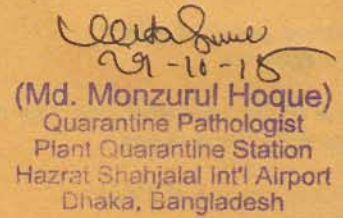 29-10-15
(Md. Monzurul Hoque)
Quarantine Pathologist
Plant Quarantine Station
Hazrat Shahjalal Int'l Airport
Dhaka, Bangladesh